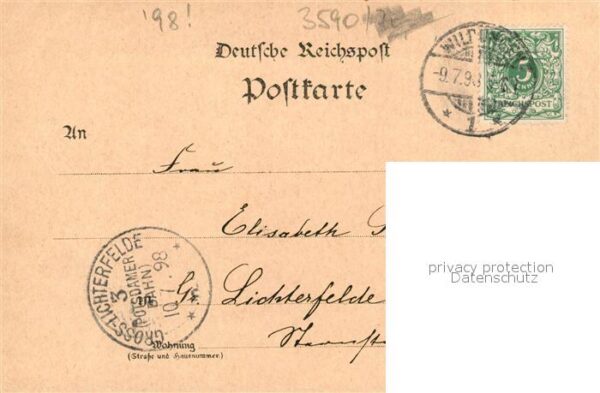 '98! 3590
Deutsche Reichspost
Postkarte
-9.7.98
* 1 *
5
REICHSPOST
An
Frau
Elisabeth
in Gr. Lichterfelde
GROSS-LICHTERFELDE
3
(POTSDAMER
BAHN)
10.7.98
Wohnung
(Straße und Hausnummer)
privacy protection
Datenschutz